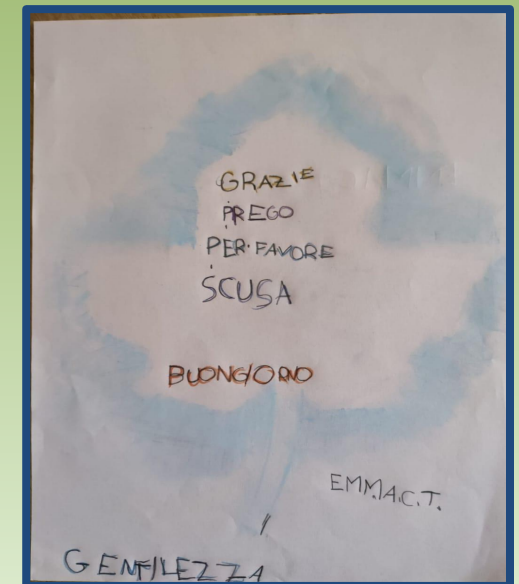 GRAZIE
PREGO
PER·FAVORE
SCUSA
BUONGIORNO
EMMA.C.T.
GENTILEZZA